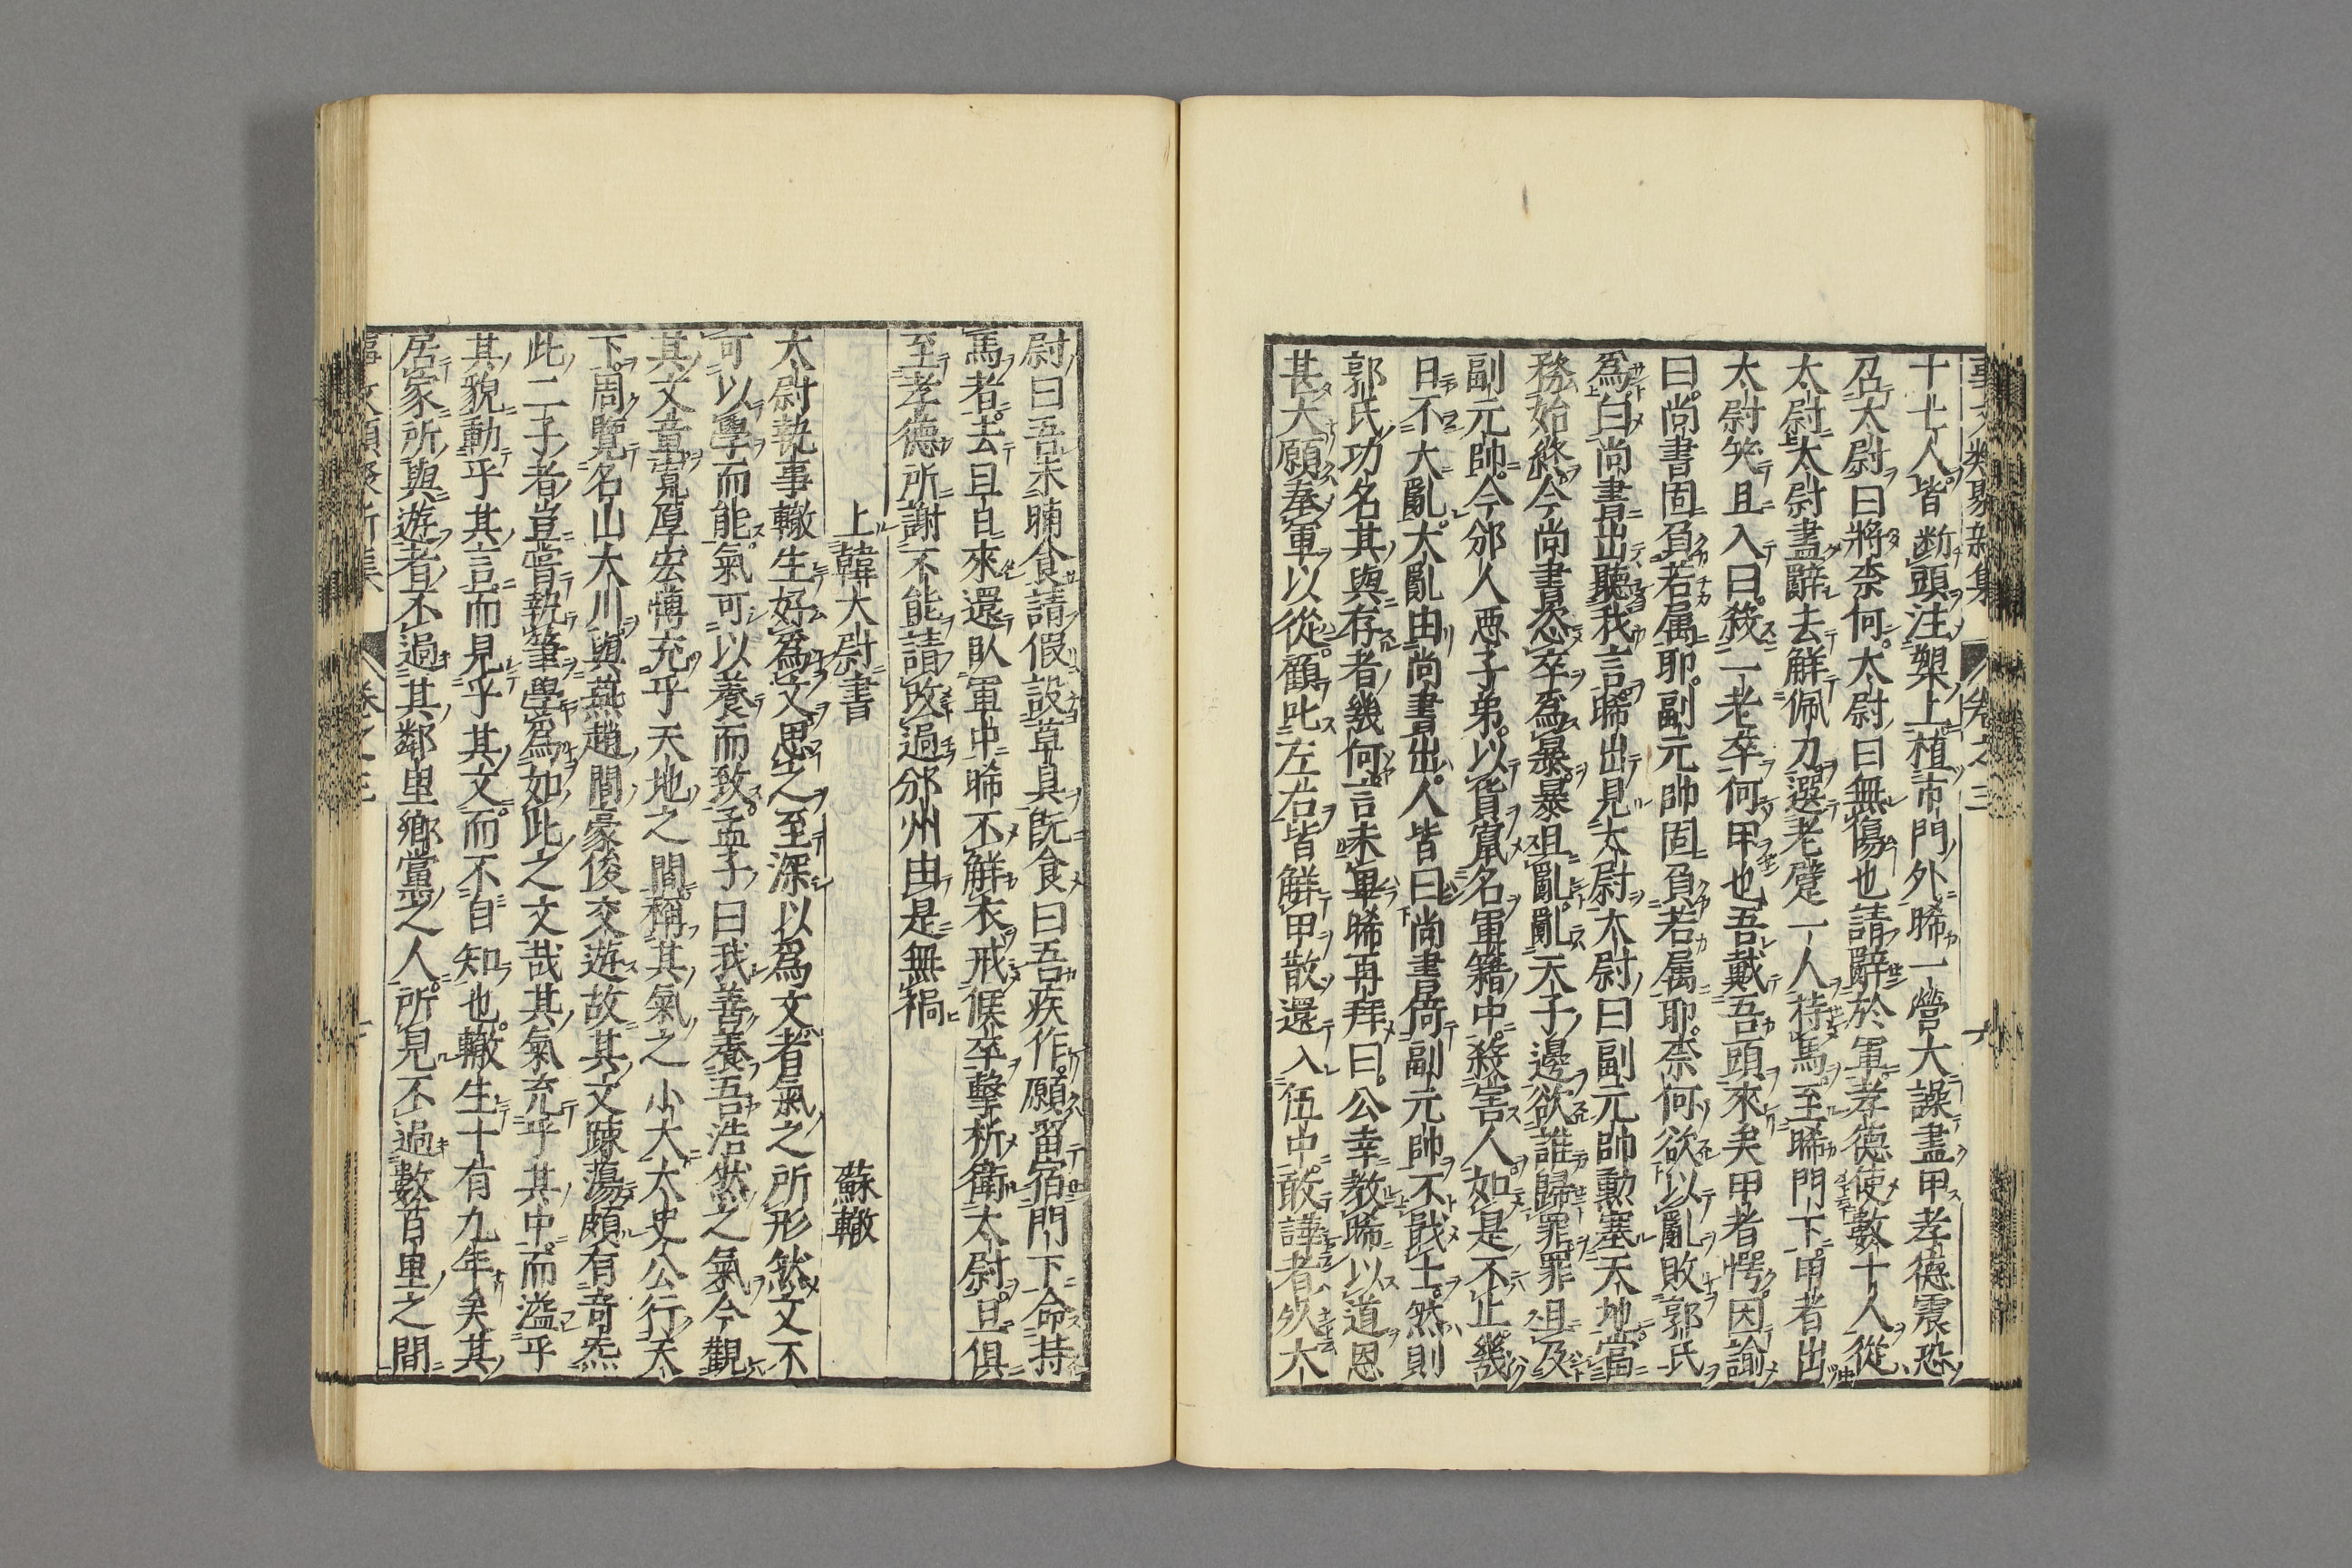 十七人皆断頭注槊上植市門外晞一營大譟盡甲孝德震恐
召太尉曰將柰何太尉曰無傷也請辭於軍孝德使數十人從
太尉太尉盡辭去解佩刀選老躄一人持馬至晞門下甲者出
太尉笑且入曰殺一老卒何甲也吾戴吾頭來矣甲者愕因諭
曰尚書固負若属耶副元帥固負若属耶柰何欲以亂敗郭氏
爲白尚書出聽我言晞出見太尉太尉曰副元帥勲塞天地當
務始終今尚書恣卒爲暴暴且亂亂天子邊欲誰歸罪罪且及
副元帥今邠人惡子弟以貨竄名軍籍中殺害人如是不止幾
日不大亂大亂由尚書出人皆曰尚書倚副元帥不戢士然則
郭氏功名其與存者幾何言未畢晞再拜曰公幸教晞以道恩
甚大願奉軍以從顧叱左右皆解甲散還入伍中敢譁者死太
尉曰吾未晡食請假設草具既食曰吾疾作願留宿門下命持
馬者去旦日來還臥軍中晞不解衣戒候卒擊柝衛太尉旦俱
至孝德所謝不能請改過邠州由是無禍
上韓太尉書
蘇轍
太尉執事轍生好爲文思之至深以爲文者氣之所形然文不
可以學而能氣可以養而致孟子曰我善養吾浩然之氣今觀
其文章寬厚宏博充乎天地之間稱其氣之小大太史公行天
下周覽名山大川與燕趙間豪俊交遊故其文踈蕩頗有奇氣
此二子者豈嘗執筆學爲如此之文哉其氣充乎其中而溢乎
其貌動乎其言而見乎其文而不自知也轍生十有九年矣其
居家所與遊者不過其鄰里鄉黨之人所見不過數百里之間